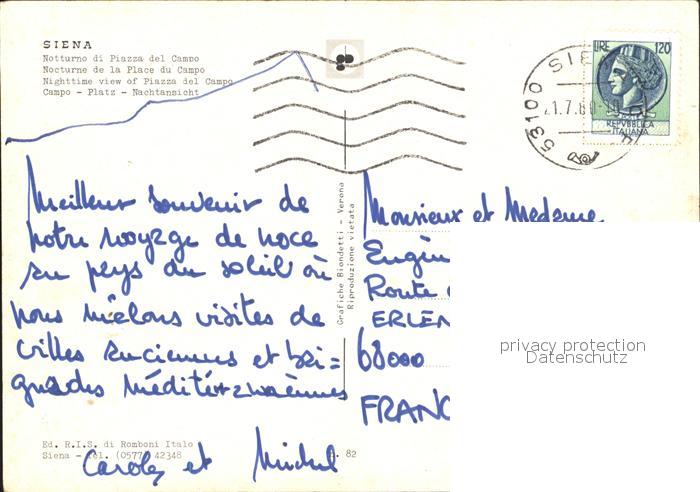 SIENA
Notturno di Piazza del Campo
Nocturne de la Place du Campo
Nighttime view of Piazza del Campo
Campo - Platz - Nachtansicht
LIRE 120
REPVBBLICA
ITALIANA
53100 SIE
1.7.80
Meilleur souvenir de
notre voyage de noce
au pays du soleil où
nous mêlons visites de
villes anciennes et bai=
gnades méditérranéennes
Carole et Michel
Grafiche Biondetti - Verona
Riproduzione vietata
Monsieur et Madame
Eugèn
Route
ERLEN
68000
FRANC
privacy protection
Datenschutz
Ed. R.I.S. di Romboni Italo
Siena - tel. (0577) 42348
82